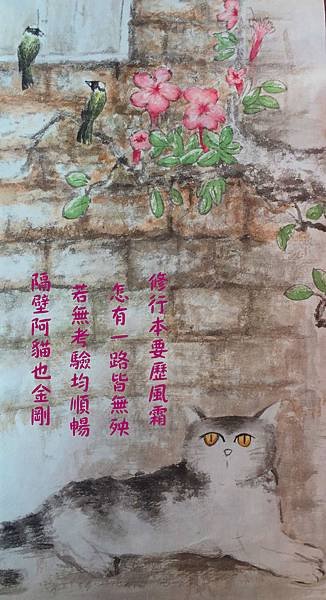 修行本要歷風霜
怎有一路皆無殃
若無考驗均順暢
隔壁阿貓也金剛